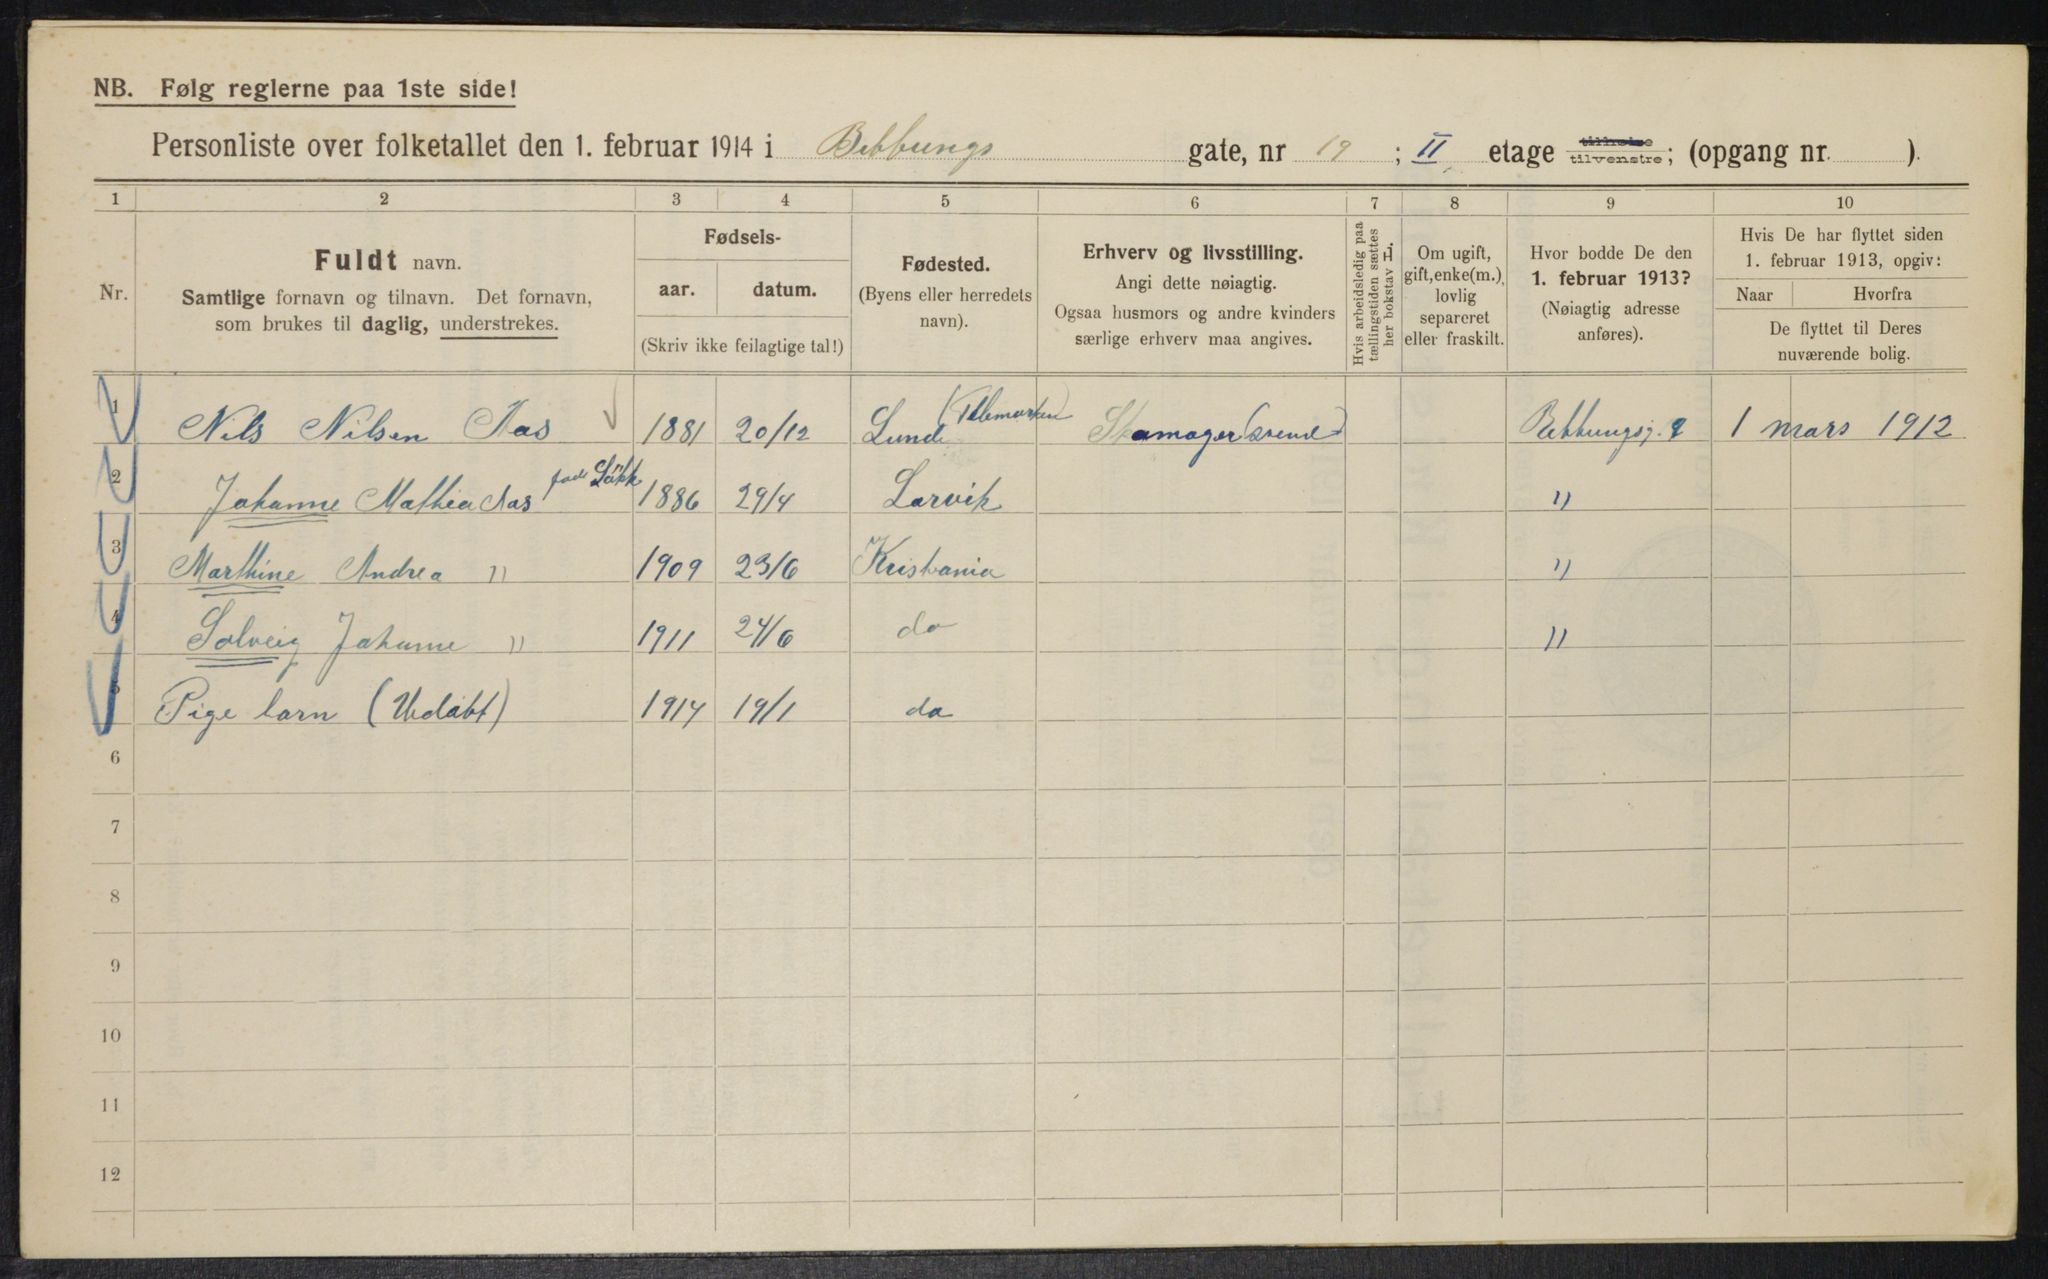 NB. Følg reglerne paa 1ste side!
Personliste over folketallet den 1. februar 1914 i Bebbungs gate, nr 19 ; II etage tilhøire tilvenstre; (opgang nr. ).
1 2 3 4 5 6 7 8 9 10
Nr.
Fuldt navn.
Samtlige fornavn og tilnavn. Det fornavn,
som brukes til daglig, understrekes.
Fødsels-
aar. datum.
(Skriv ikke feilagtige tal!)
Fødested.
(Byens eller herredets
navn).
Erhverv og livsstilling.
Angi dette nøiagtig.
Ogsaa husmors og andre kvinders
særlige erhverv maa angives.
Hvis arbeidsledig paa
tællingstiden sættes
her bokstav L.
Om ugift,
gift, enke(m.),
lovlig
separeret
eller fraskilt.
Hvor bodde De den
1. februar 1913?
(Nøiagtig adresse
anføres).
Hvis De har flyttet siden
1. februar 1913, opgiv:
Naar Hvorfra
De flyttet til Deres
nuværende bolig.
1 Nils Nilsen Aas 1881 20/12 Lunde (Telemarken) Skomager (svend) Bebbungsg. 9 1 mars 1912
2 Johanne Mathea Aas født Løkk 1886 29/4 Larvik "
3 Marthine Andrea " 1909 23/6 Kristiania "
4 Solveig Johanne " 1911 24/6 do "
5 Pige barn (Udøbt) 1914 19/1 do
6
7
8
9
10
11
12